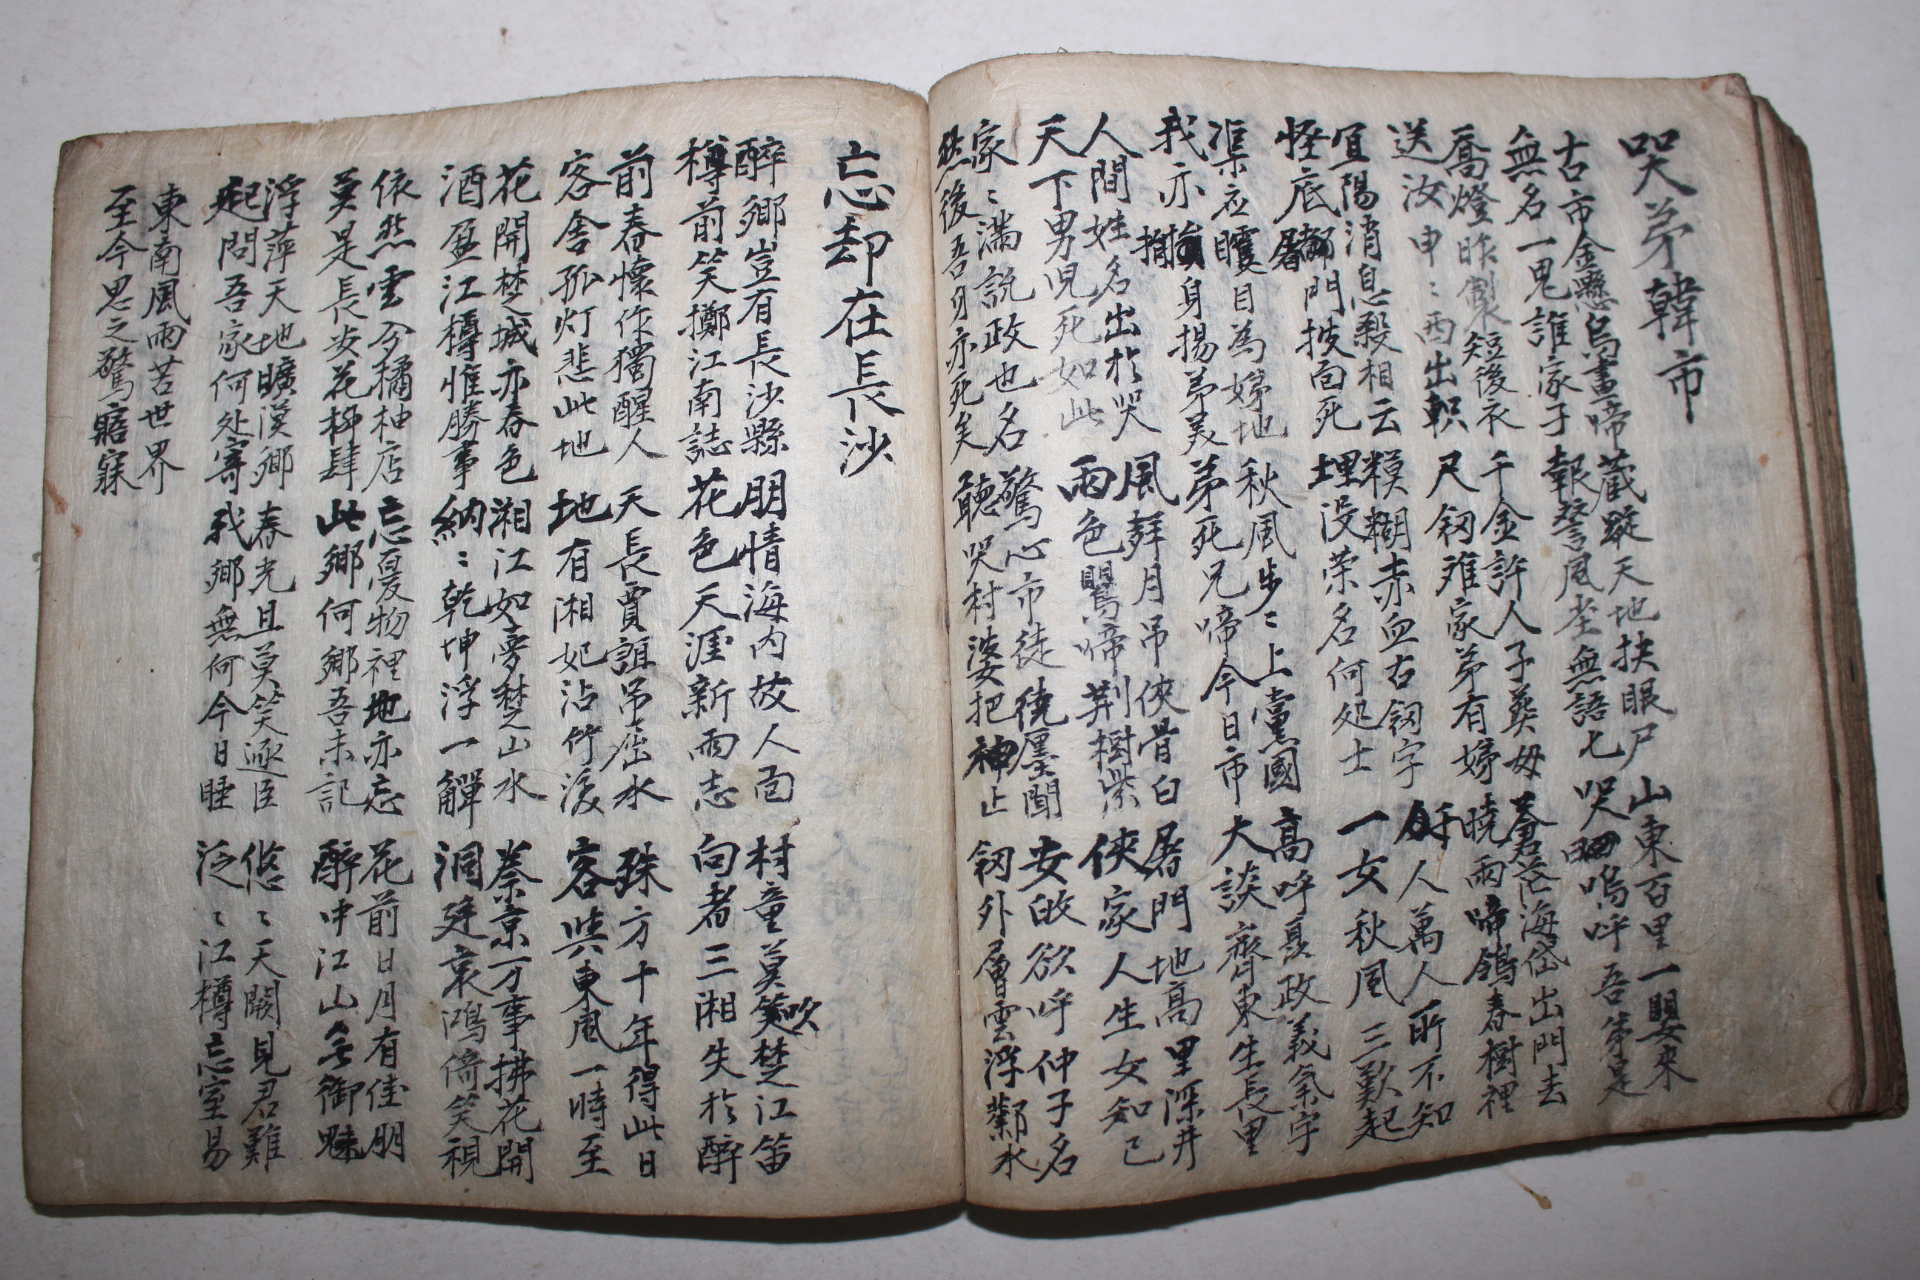 哭弟韓市
古市金懸烏晝啼 藏蹤天地抉眼尸 山東百里一嫈来
無名一鬼誰家子 報讐風塵無語七 哭嗚呼吾弟是
篝燈昨製短後衣 千金許人子葬母 蒼茫海岱出門去
送汝申〻西出軹 尺釼难家弟有婷 曉雨啼鴒春樹裡
宜陽消息殺相云 糢糊赤血右釼字 千人萬人所不知
怪底屠門披面死 埋没荣名何処士 一女秋風三歎起
渠应目為婷地 秋風步〻上黨國 高呼聂政義氣字
我亦捐身揚弟美 弟死兄啼今日市 大談齊東生長里
人間姓名出於哭 風月吊俠骨白 屠門地高里深井
天下男児死如此 雨色鵑啼荆樹紫 俠家人生女知己
家〻滿說政也名 驚心市徒繞壥聞 安敀欲呼仲子名
然後吾身亦死矣 聽哭村婆把神止 釼外層雲浮鄴水
忘却在長沙
醉鄉豈有長沙縣 朋情海内故人面 村童莫吹楚江笛
樽前笑擲江南誌 花色天涯新雨志 向者三湘失於醉
前春懷作獨醒人 天長賈誼吊屈水 殊方十年得此日
客舍孤灯悲此地 地有湘妃沾竹淚 客與東風一時至
花開楚城亦春色 湘江如夢楚山水 秦京万事拂花開
酒盈江樽惟勝事 納〻乾坤浮一觶 洞庭哀鴻倚笑視
依然雲夕橘柚店 忘憂物裡地亦忘 花前日月有佳朋
莫是長安花柳肆 此鄉何鄉吾未記 醉中江山無御魅
浮萍天地曠漠鄉 春光且莫笑逐臣 悠〻天闕見君難
起問吾家何处寄 我鄉無何今日睡 泛〻江樽忘室易
東南風雨苦世界
至今思之驚寤寐